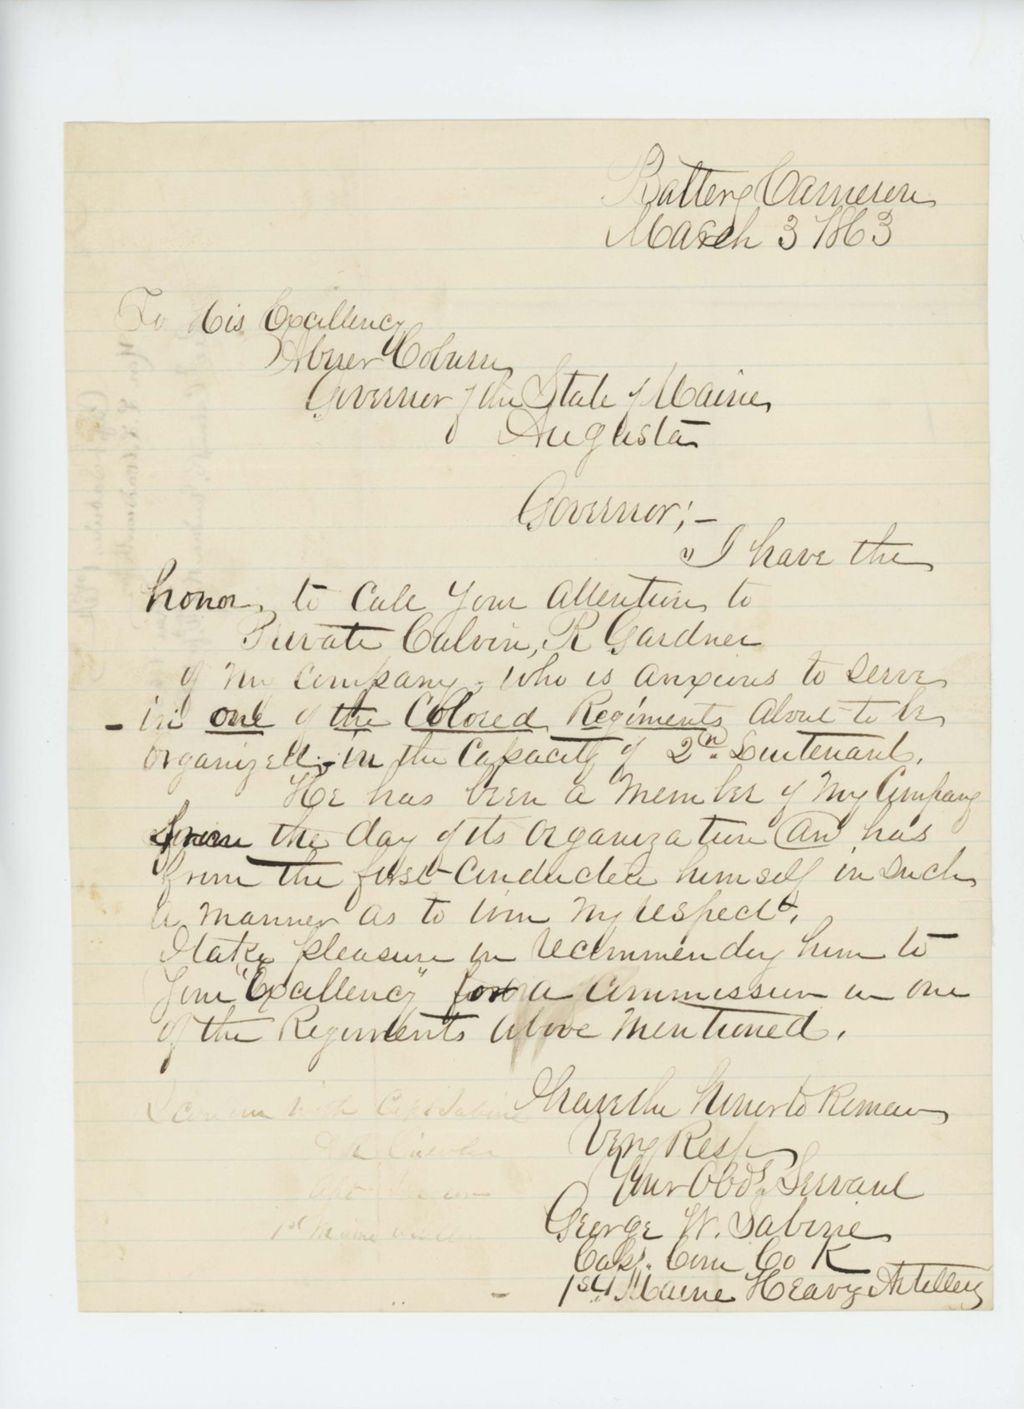 Battery Cameron
March 3 1863
To His Excellency
Abner Coburn
Governor of the State of Maine
Augusta
Governor;-
"I have the
honor, to Call Your Attention to
Private Calvin, R Gardner
of My Company, who is anxious to serve
- in one of the Colored Regiments About to be
organized, in the Capacity of 2n. Lieutenant.
He has been a Member of My Company
from the day of its Organization An has
from the first Conducted himself in Such
a Manner as to win My respect.
I take pleasure in recommending him to
Your "Excellency" for a Commission in one
of the Regiments above Mentioned.
I have the Honor to Remain
Very Resp
Your Obdt Servant
George W. Sabine
Capt. Com Co K
1st Maine Heavy Artillery
I concur with Capt Sabine
1st Maine